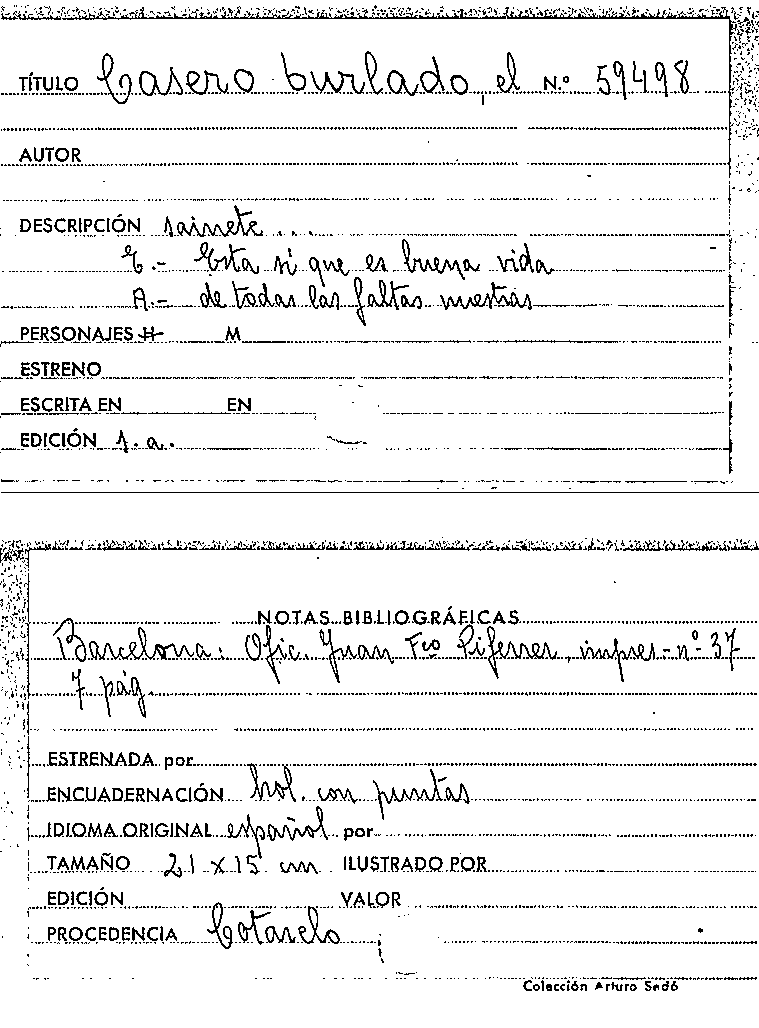 TÍTULO Casero burlado, el N.º 59498
AUTOR
DESCRIPCIÓN sainete...
E.- Esta si que es buena vida
A.- de todas las faltas nuestras
PERSONAJES H M
ESTRENO
ESCRITA EN EN
EDICIÓN s.a.
NOTAS BIBLIOGRÁFICAS
Barcelona: Ofic. Juan Fco Piferrer, impres- nº 37
7 pág.
ESTRENADA por
ENCUADERNACIÓN hol. con puntas
IDIOMA ORIGINAL español por
TAMAÑO 21 x 15 cm ILUSTRADO POR
EDICIÓN VALOR
PROCEDENCIA Cotarelo
Colección Arturo Sedó